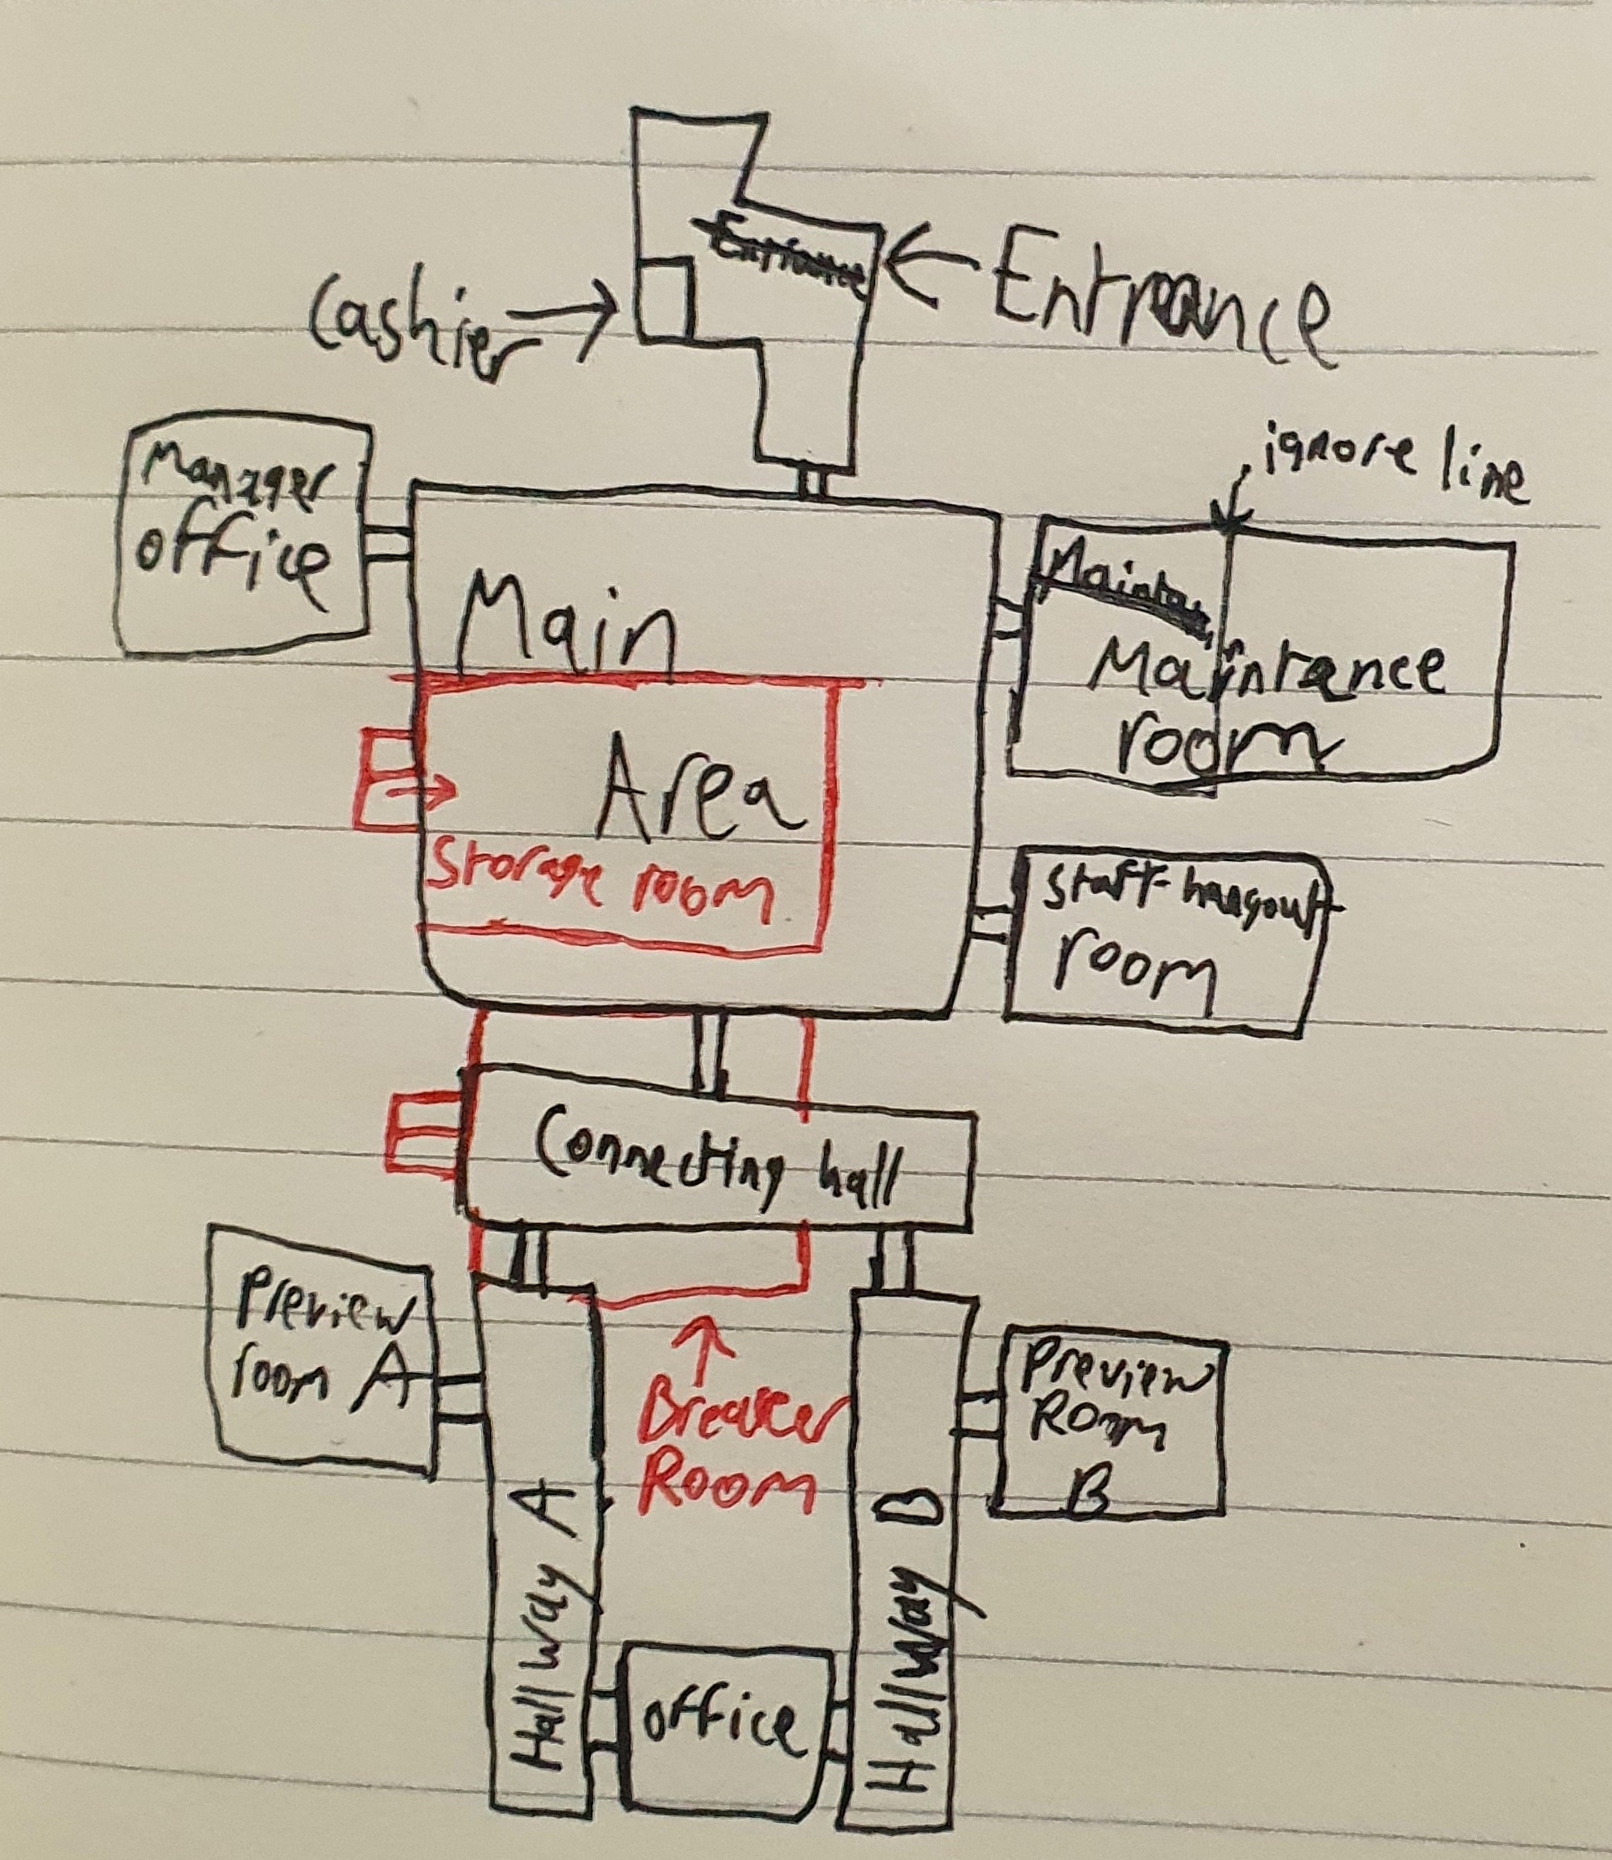 Entrance
Entrance
Cashier
ignore line
Manager
office
Maintan
Main
Maintance
room
Area
Storage room
Staff hangout
room
Connecting hall
Preview
room A
Preview
Room
B
Breaker
Room
Hallway A
Hallway B
office